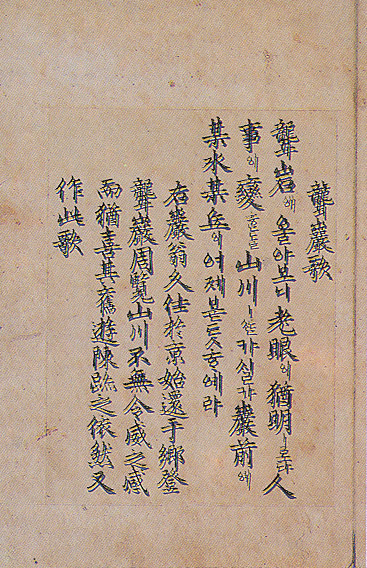 聾巖歌
聾岩애올아보니老眼이猶明이로다人
事이變ᄒᆞᆫᄃᆞᆯ山川이ᄯᆞᆫ가ᄉᆡᆯ가巖前에
某水某丘이어제본ᄃᆞᆺᄒᆞ예라
右巖翁久仕於京始還于鄕登
聾巖周覽山川不無令威之感
而猶喜其舊遊陳跡之依然又
作此歌